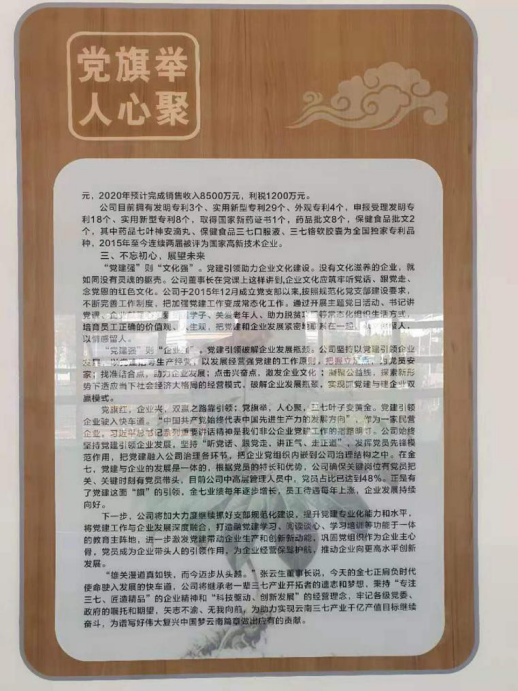 党旗举
人心聚
元，2020年预计完成销售收入8500万元，利税1200万元。
公司目前拥有发明专利3个、实用新型专利29个、外观专利4个，申报受理发明专
利18个、实用新型专利8个，取得国家新药证书1个，药品批文8个，保健食品批文2
个，其中药品七叶神安滴丸、保健食品三七口服液、三七铬软胶囊为全国独家专利品
种，2015年至今连续两届被评为国家高新技术企业。
三、不忘初心，展望未来
“党建强”则“文化强”。党建引领助力企业文化建设。没有文化滋养的企业，就
如同没有灵魂的躯壳。公司董事长在党课上这样讲到,企业文化应筑牢听党话、跟党走、
念党恩的红色文化。公司于2015年12月成立党支部以来,按照规范化党支部建设要求，
不断完善工作制度，把加强党建工作变成常态化工作。通过开展主题党日活动、书记讲
党课、学子、关爱老年人、助力脱贫等常态化组织生活方式，
培育员工正确的价值观、人生观，把党建和企业发展紧密地联系在一起
以情感留人。
“党建强”则“企业强”。党建引领破解企业发展瓶颈。公司坚持以党建引领企业
发展，以发展经营强党建的工作原则，
家；找准结合点，助力企业发展；点击兴奋点，激发企业文化；凝聚公益线，探索新形
势下适应当下社会经济大格局的经营模式，破解企业发展瓶颈，实现了党建与建企业双
赢模式。
党旗红，企业兴，双赢之路靠引领；党旗举，人心聚，三七叶子变黄金。党建引领
企业驶入快车道。“中国共产党始终代表中国先进生产力的发展方向”，作为一家民营
企业，习近平总书记系列重要讲话精神是我们非公企业党建工作的指路明灯。公司始终
坚持党建引领企业发展，坚持“听党话、跟党走、讲正气、走正道”，发挥党员先锋模
范作用，把党建融入公司治理各环节，把企业党组织内嵌到公司治理结构之中。在金
七，党建与企业的发展是一体的，根据党员的特长和优势，公司确保关键岗位有党员把
关、关键时刻有党员带头，目前公司中高层管理人员中，党员占比已达到48%。正是有
了党建这面“旗”的引领，金七业绩每年逐步增长，员工待遇每年上涨，企业发展持续
向好。
下一步，公司将加大力度继续抓好支部规范化建设，提升党建专业化能力和水平，
将党建工作与企业发展深度融合，打造融党建学习、阅读谈心、学习培训等功能于一体
的教育主阵地，进一步激发党建带动企业生产和创新新动能，巩固党组织作为企业主心
骨，党员成为企业带头人的引领作用，为企业经营保驾护航，推动企业向更高水平创新
发展。
“雄关漫道真如铁，而今迈步从头越。”张云生董事长说，今天的金七正肩负时代
使命驶入发展的快车道，公司将继承老一辈三七产业开拓者的遗志和梦想，秉持“专注
三七、匠造精品”的企业精神和“科技驱动、创新发展”的经营理念，牢记各级党委、
政府的嘱托和期望，矢志不渝、无我向前，为助力实现云南三七产业千亿产值目标继续
奋斗，为谱写好伟大复兴中国梦云南篇章做出应有的贡献。